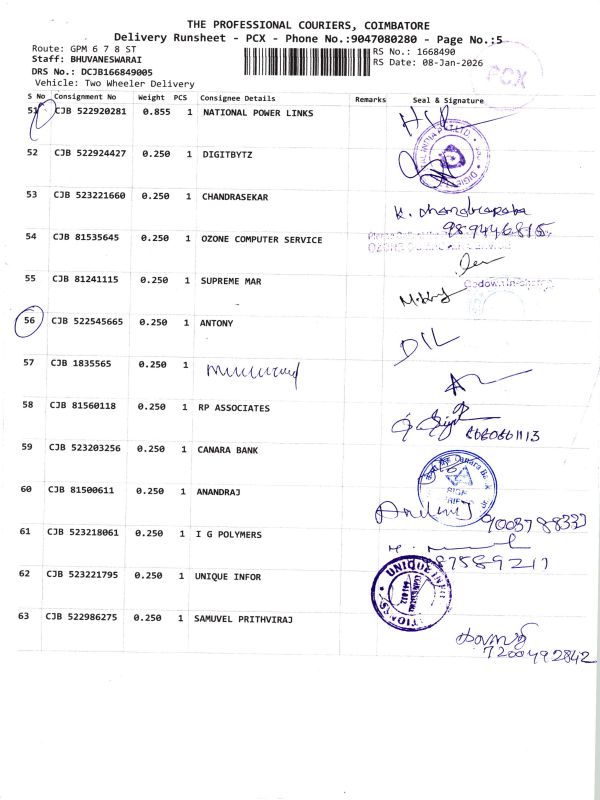 THE PROFESSIONAL COURIERS, COIMBATORE
Delivery Runsheet - PCX - Phone No.:9047080280 - Page No.:5
Route: GPM 6 7 8 ST
RS No.: 1668490
Staff: BHUVANESWARAI
RS Date: 08-Jan-2026
DRS No.: DCJB166849005
PCX
Vehicle: Two Wheeler Delivery
S No Consignment No Weight PCS Consignee Details Remarks Seal & Signature
51 CJB 522920281 0.855 1 NATIONAL POWER LINKS
52 CJB 522924427 0.250 1 DIGITBYTZ
53 CJB 523221660 0.250 1 CHANDRASEKAR
989446815
54 CJB 81535645 0.250 1 OZONE COMPUTER SERVICE
55 CJB 81241115 0.250 1 SUPREME MAR
Godown In-charge
56 CJB 522545665 0.250 1 ANTONY
DIL
57 CJB 1835565 0.250 1
58 CJB 81560118 0.250 1 RP ASSOCIATES
59 CJB 523203256 0.250 1 CANARA BANK
Canara Bank
60 CJB 81500611 0.250 1 ANANDRAJ
61 CJB 523218061 0.250 1 I G POLYMERS
87589217
62 CJB 523221795 0.250 1 UNIQUE INFOR
UNIQUE INF
63 CJB 522986275 0.250 1 SAMUVEL PRITHVIRAJ
7200492842